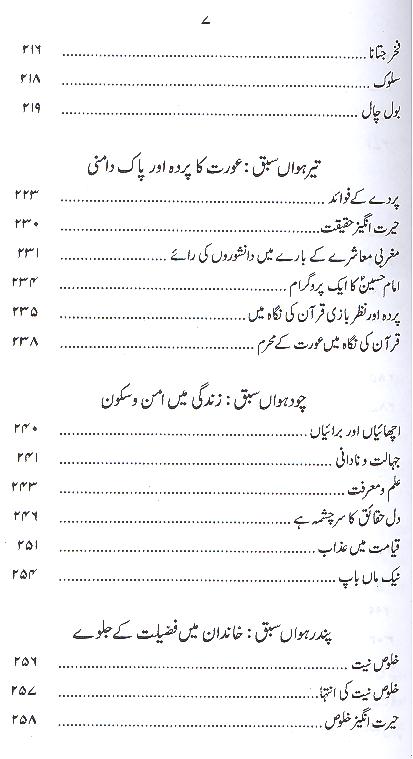 ۷
فخر جتانا ........................ ۲۱۶
سلوک ........................ ۲۱۸
بول چال ........................ ۲۱۹
تیرہواں سبق : عورت کا پردہ اور پاک دامنی
پردے کے فوائد ........................ ۲۲۳
حیرت انگیز حقیقت ........................ ۲۳۰
مغربی معاشرے کے بارے میں دانشوروں کی رائے ........................ ۲۳۱
امام حسینؑ کا ایک پروگرام ........................ ۲۳۴
پردہ اور نظر بازی قرآن کی نگاہ میں ........................ ۲۳۵
قرآن کی نگاہ میں عورت کے محرم ........................ ۲۳۸
چودہواں سبق : زندگی میں امن و سکون
اچھائیاں اور برائیاں ........................ ۲۴۰
جہالت و نادانی ........................ ۲۴۱
علم و معرفت ........................ ۲۴۳
دل حقائق کا سرچشمہ ہے ........................ ۲۴۶
قیامت میں عذاب ........................ ۲۵۱
نیک ماں باپ ........................ ۲۵۴
پندرہواں سبق : خاندان میں فضیلت کے جلوے
خلوص نیت ........................ ۲۵۶
خلوص نیت کی انتہا ........................ ۲۵۷
حیرت انگیز خلوص ........................ ۲۵۸